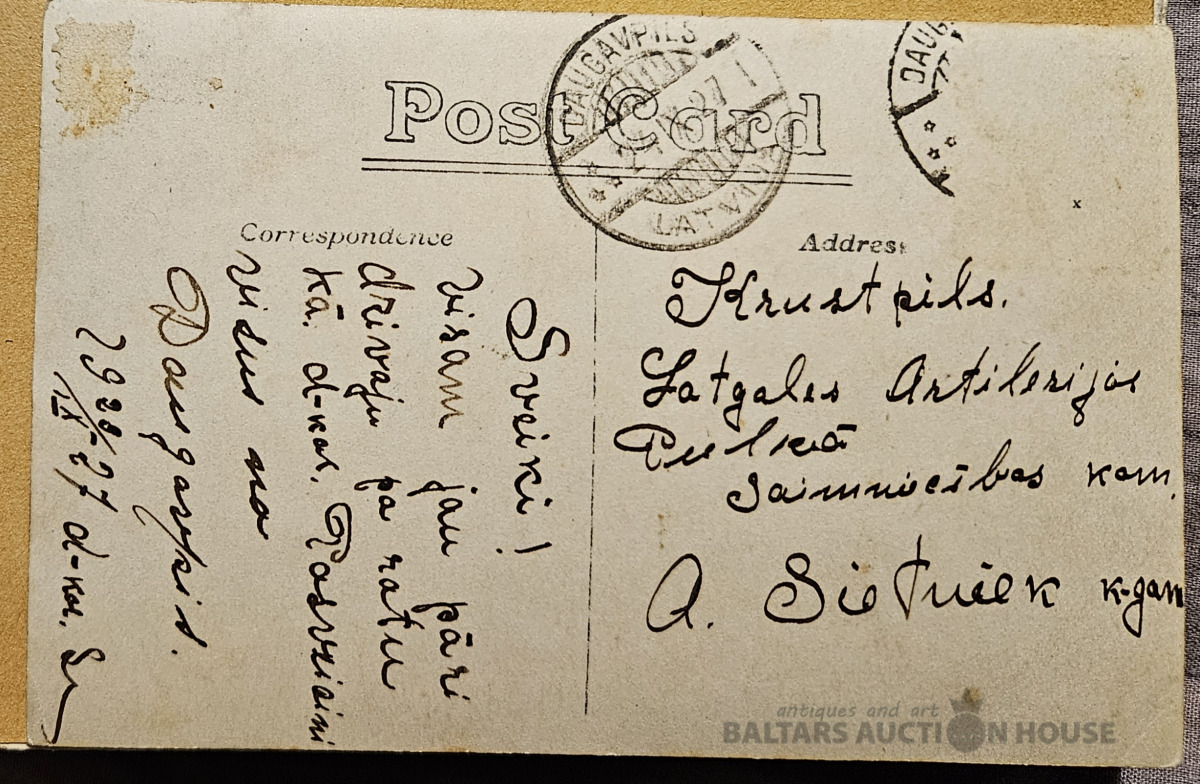 Post Card
DAUGAVPILS
LATVIJA
DAUG
Correspondence
Address
Sveiki!
visam jau pāri
dzivaju pa ratu
kā. d-kor.
visus no
Daugavpils.
IX-27 d-kor.
Krustpils.
Latgales Artilerijas
Pulkā
Saimniecības kom.
A. Sietniek k-gam
antiques and art
BALTARS AUCTION HOUSE